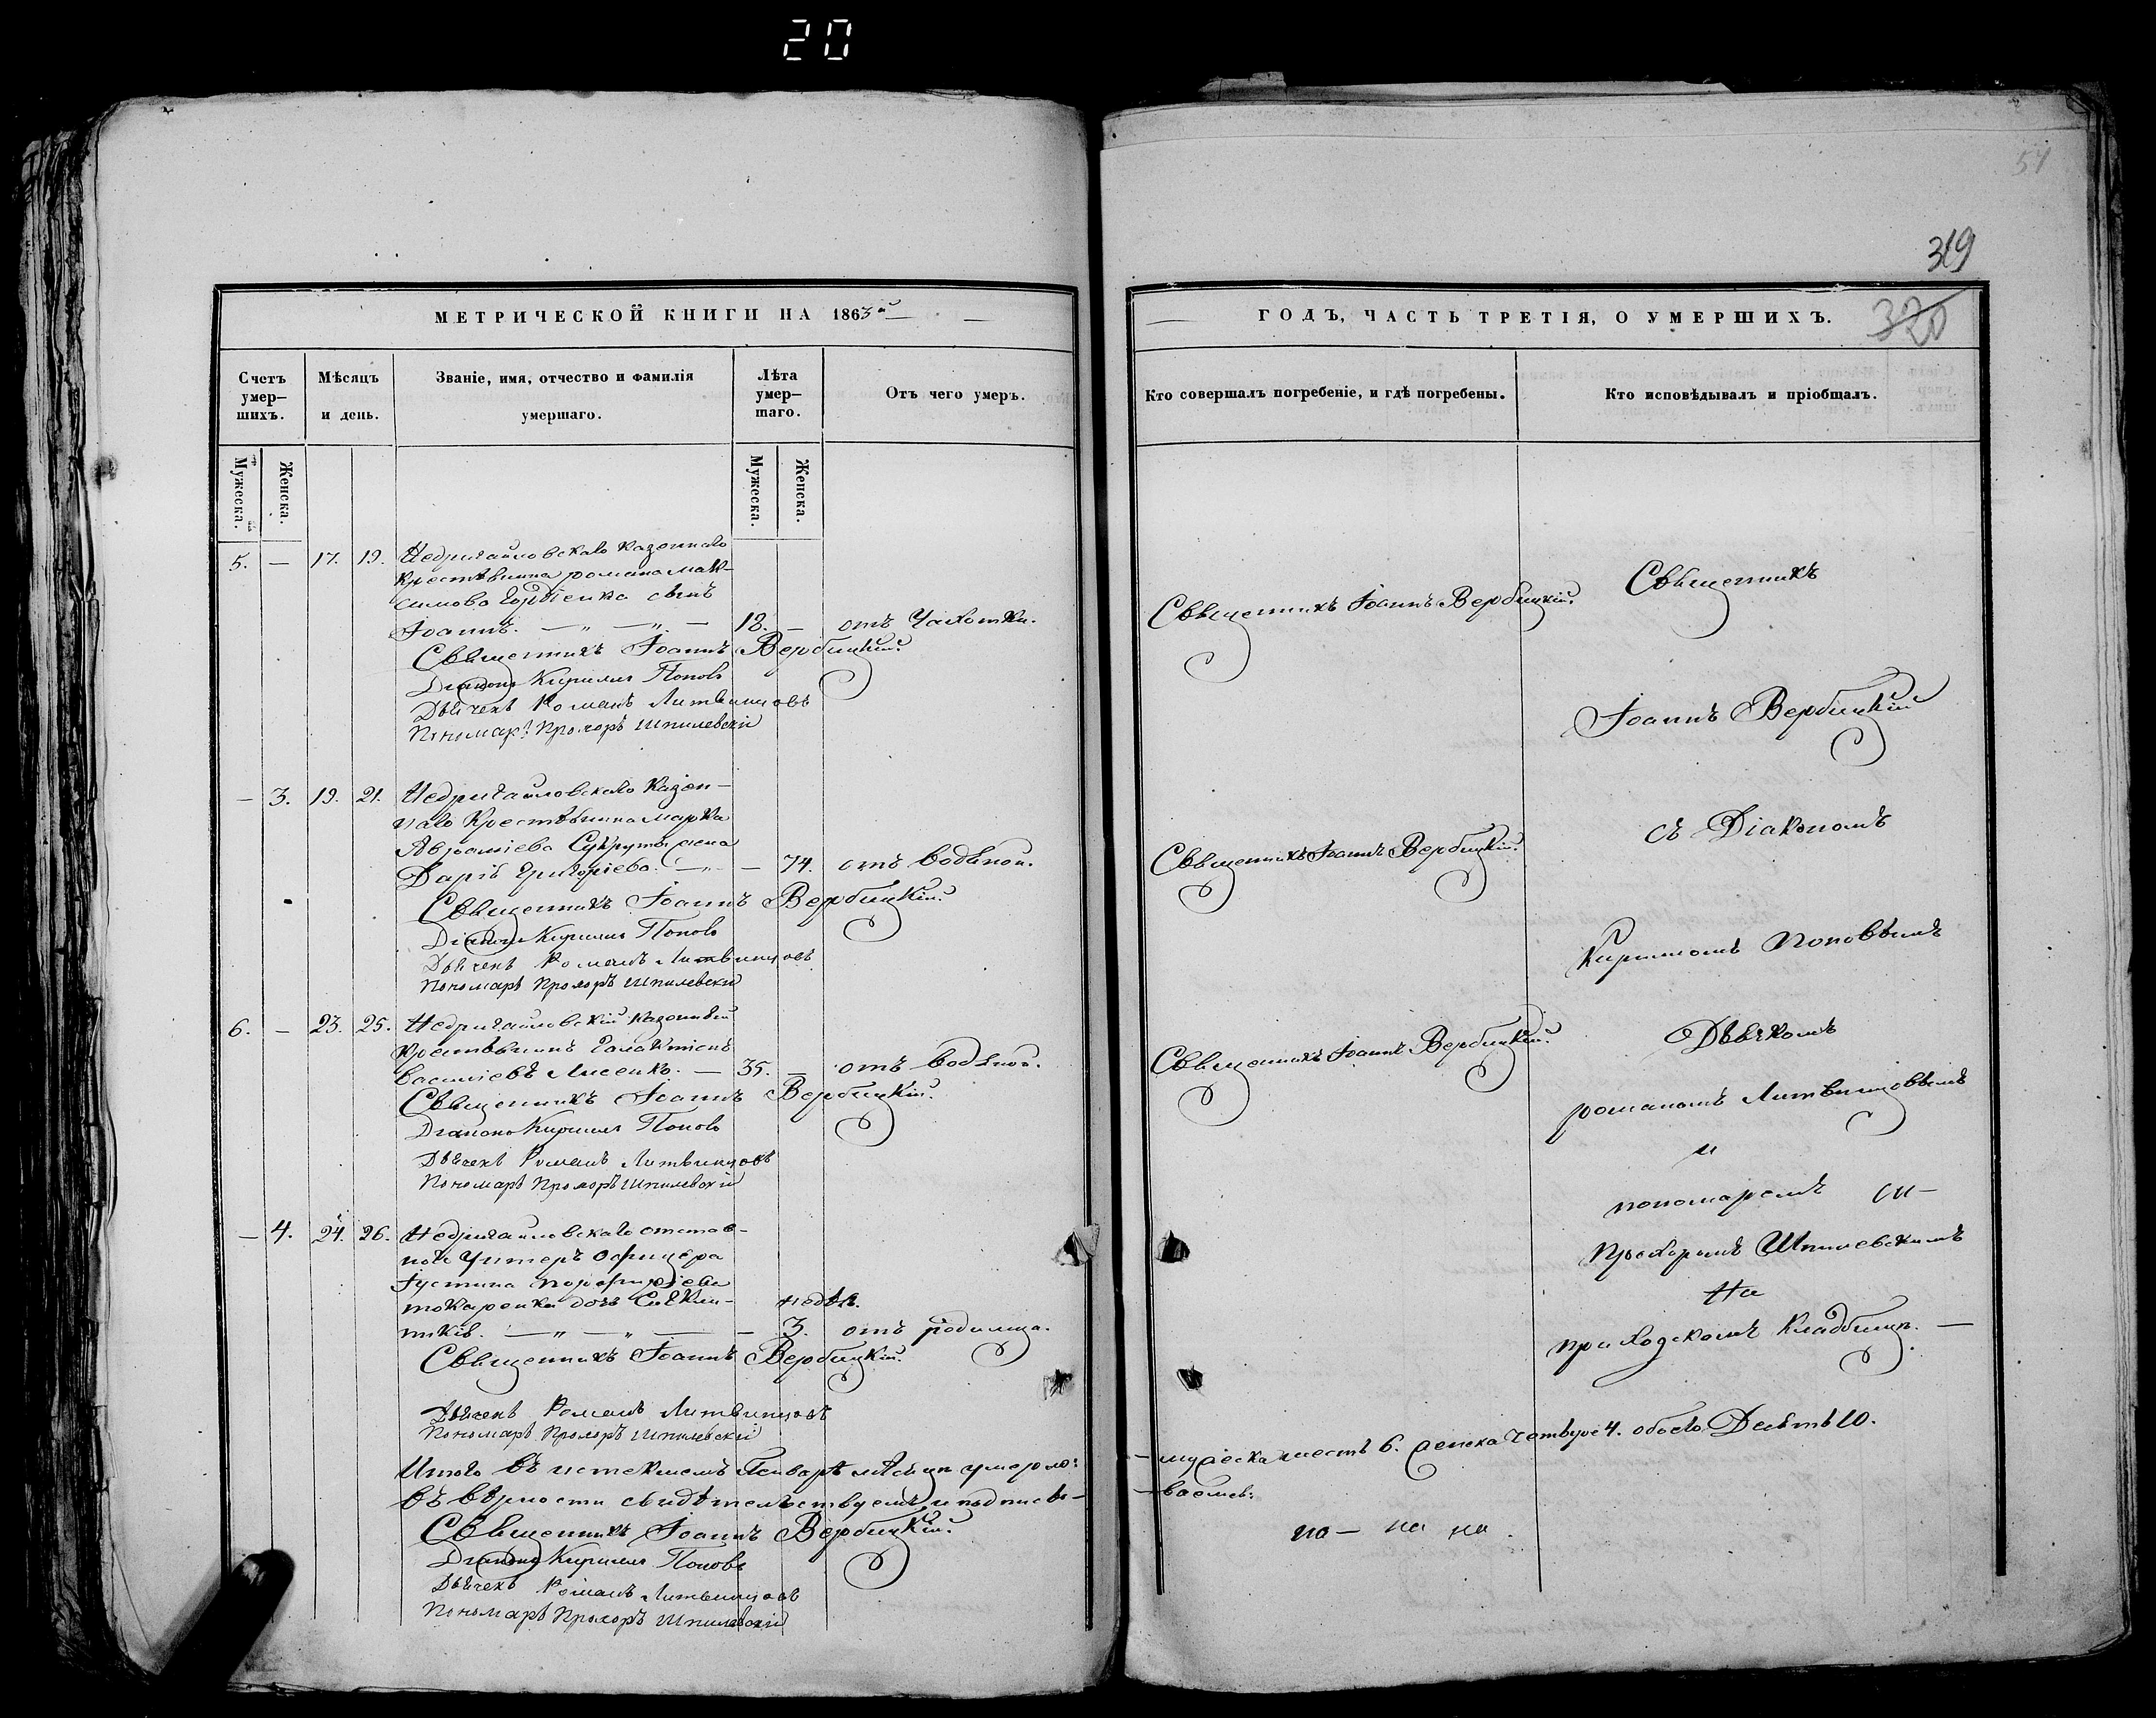 20
54
319
320
МЕТРИЧЕСКОЙ КНИГИ НА 1863й
ГОДЪ, ЧАСТЬ ТРЕТІЯ, О УМЕРШИХЪ.
Счетъ умер-шихъ.
Мѣсяцъ и день.
Званіе, имя, отчество и фамилія умершаго.
Лѣта умер-шаго.
Отъ чего умеръ.
Кто совершалъ погребеніе, и гдѣ погребены.
Кто исповѣдывалъ и пріобщалъ.
Мужеска.
Женска.
Мужеска.
Женска.
5. — 17. 19. Недригайловскаго казеннаго
крестьянина романа мак-
симова Горбенка сынъ
Іоаннъ. — „ — „ — 18. — отъ Чахотки.
Священникъ Іоаннъ Вербицкій.
Діаконъ Кириллъ Поповъ
Дьячекъ Романъ Литвинцовъ
Пономарь Прохоръ Шпилевскій
Священникъ Іоаннъ Вербицкій.
— 3. 19. 21. Недригайловскаго Казен-
наго Крестьянина Марка
Авраміева Сукруты жена
Дарія Григоріева. — „ — 74. отъ водяной.
Священникъ Іоаннъ Вербицкій.
Діаконъ Кириллъ Поповъ
Дьячекъ Романъ Литвинцовъ
Пономарь Прохоръ Шпилевскій
Священникъ Іоаннъ Вербицкій.
6. — 23. 25. Недригайловскій казенный
Крестьянинъ Галактіонъ
Василіевъ Лисенко. — 35. — отъ водяной.
Священникъ Іоаннъ Вербицкій.
Діаконъ Кириллъ Поповъ
Дьячекъ Романъ Литвинцовъ
Пономарь Прохоръ Шпилевскій
Священникъ Іоаннъ Вербицкій.
— 4. 24. 26. Недригайловскаго отстав-
наго Унтеръ Офицера
Іустина порфиріева
токаренка дочь Синкли-
тикія. — „ — „ — — недѣл. 3. отъ родимца.
Священникъ Іоаннъ Вербицкій.
Дьячекъ Романъ Литвинцовъ
Пономарь Прохоръ Шпилевскій
Итого въ истекшемъ Генварѣ мѣсяцѣ умерло:
въ вѣрности свидѣтельствуемъ и подписы-
Священникъ Іоаннъ Вербицкій.
Діаконъ Кириллъ Поповъ
Дьячекъ Романъ Литвинцовъ
Пономарь Прохоръ Шпилевскій
Священникъ
Іоаннъ Вербицкій
съ Діакономъ
Кириломъ Поповымъ
Дьячкомъ
романомъ Литвинцовымъ
и
пономаремъ
Прохоромъ Шпилевскимъ
На
приходскомъ кладбищѣ. —
— мужеска шесть 6. женска Четыре 4. обоего Десять 10.
— ваемся: